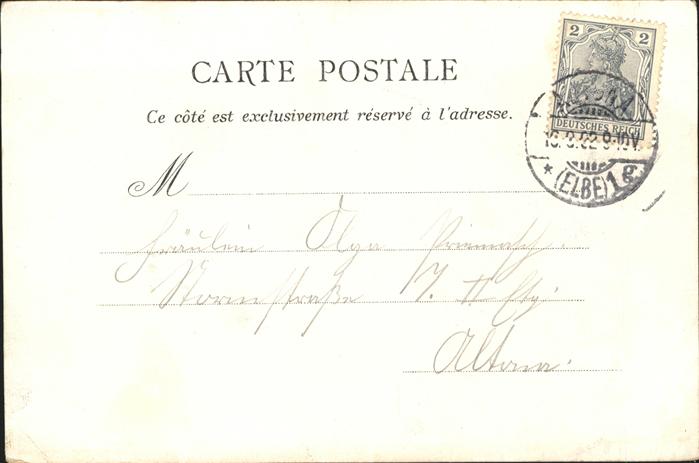 CARTE POSTALE
Ce côté est exclusivement réservé à l'adresse.
2 2
DEUTSCHES REICH
(ELBE)
M
Fräulein Olga
7. II Etg.
Altona.